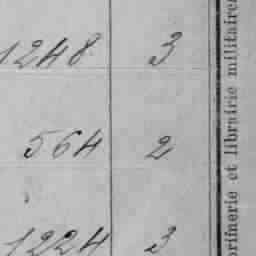 1248 3
564 2
1224 3
primerie et librairie militaire